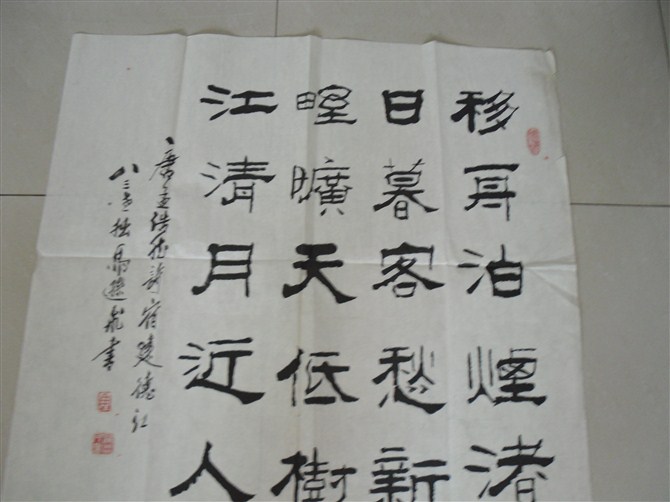 移舟泊煙渚
日暮客愁新
野曠天低樹
江清月近人
唐孟浩然詩宿建德江
八三馬書